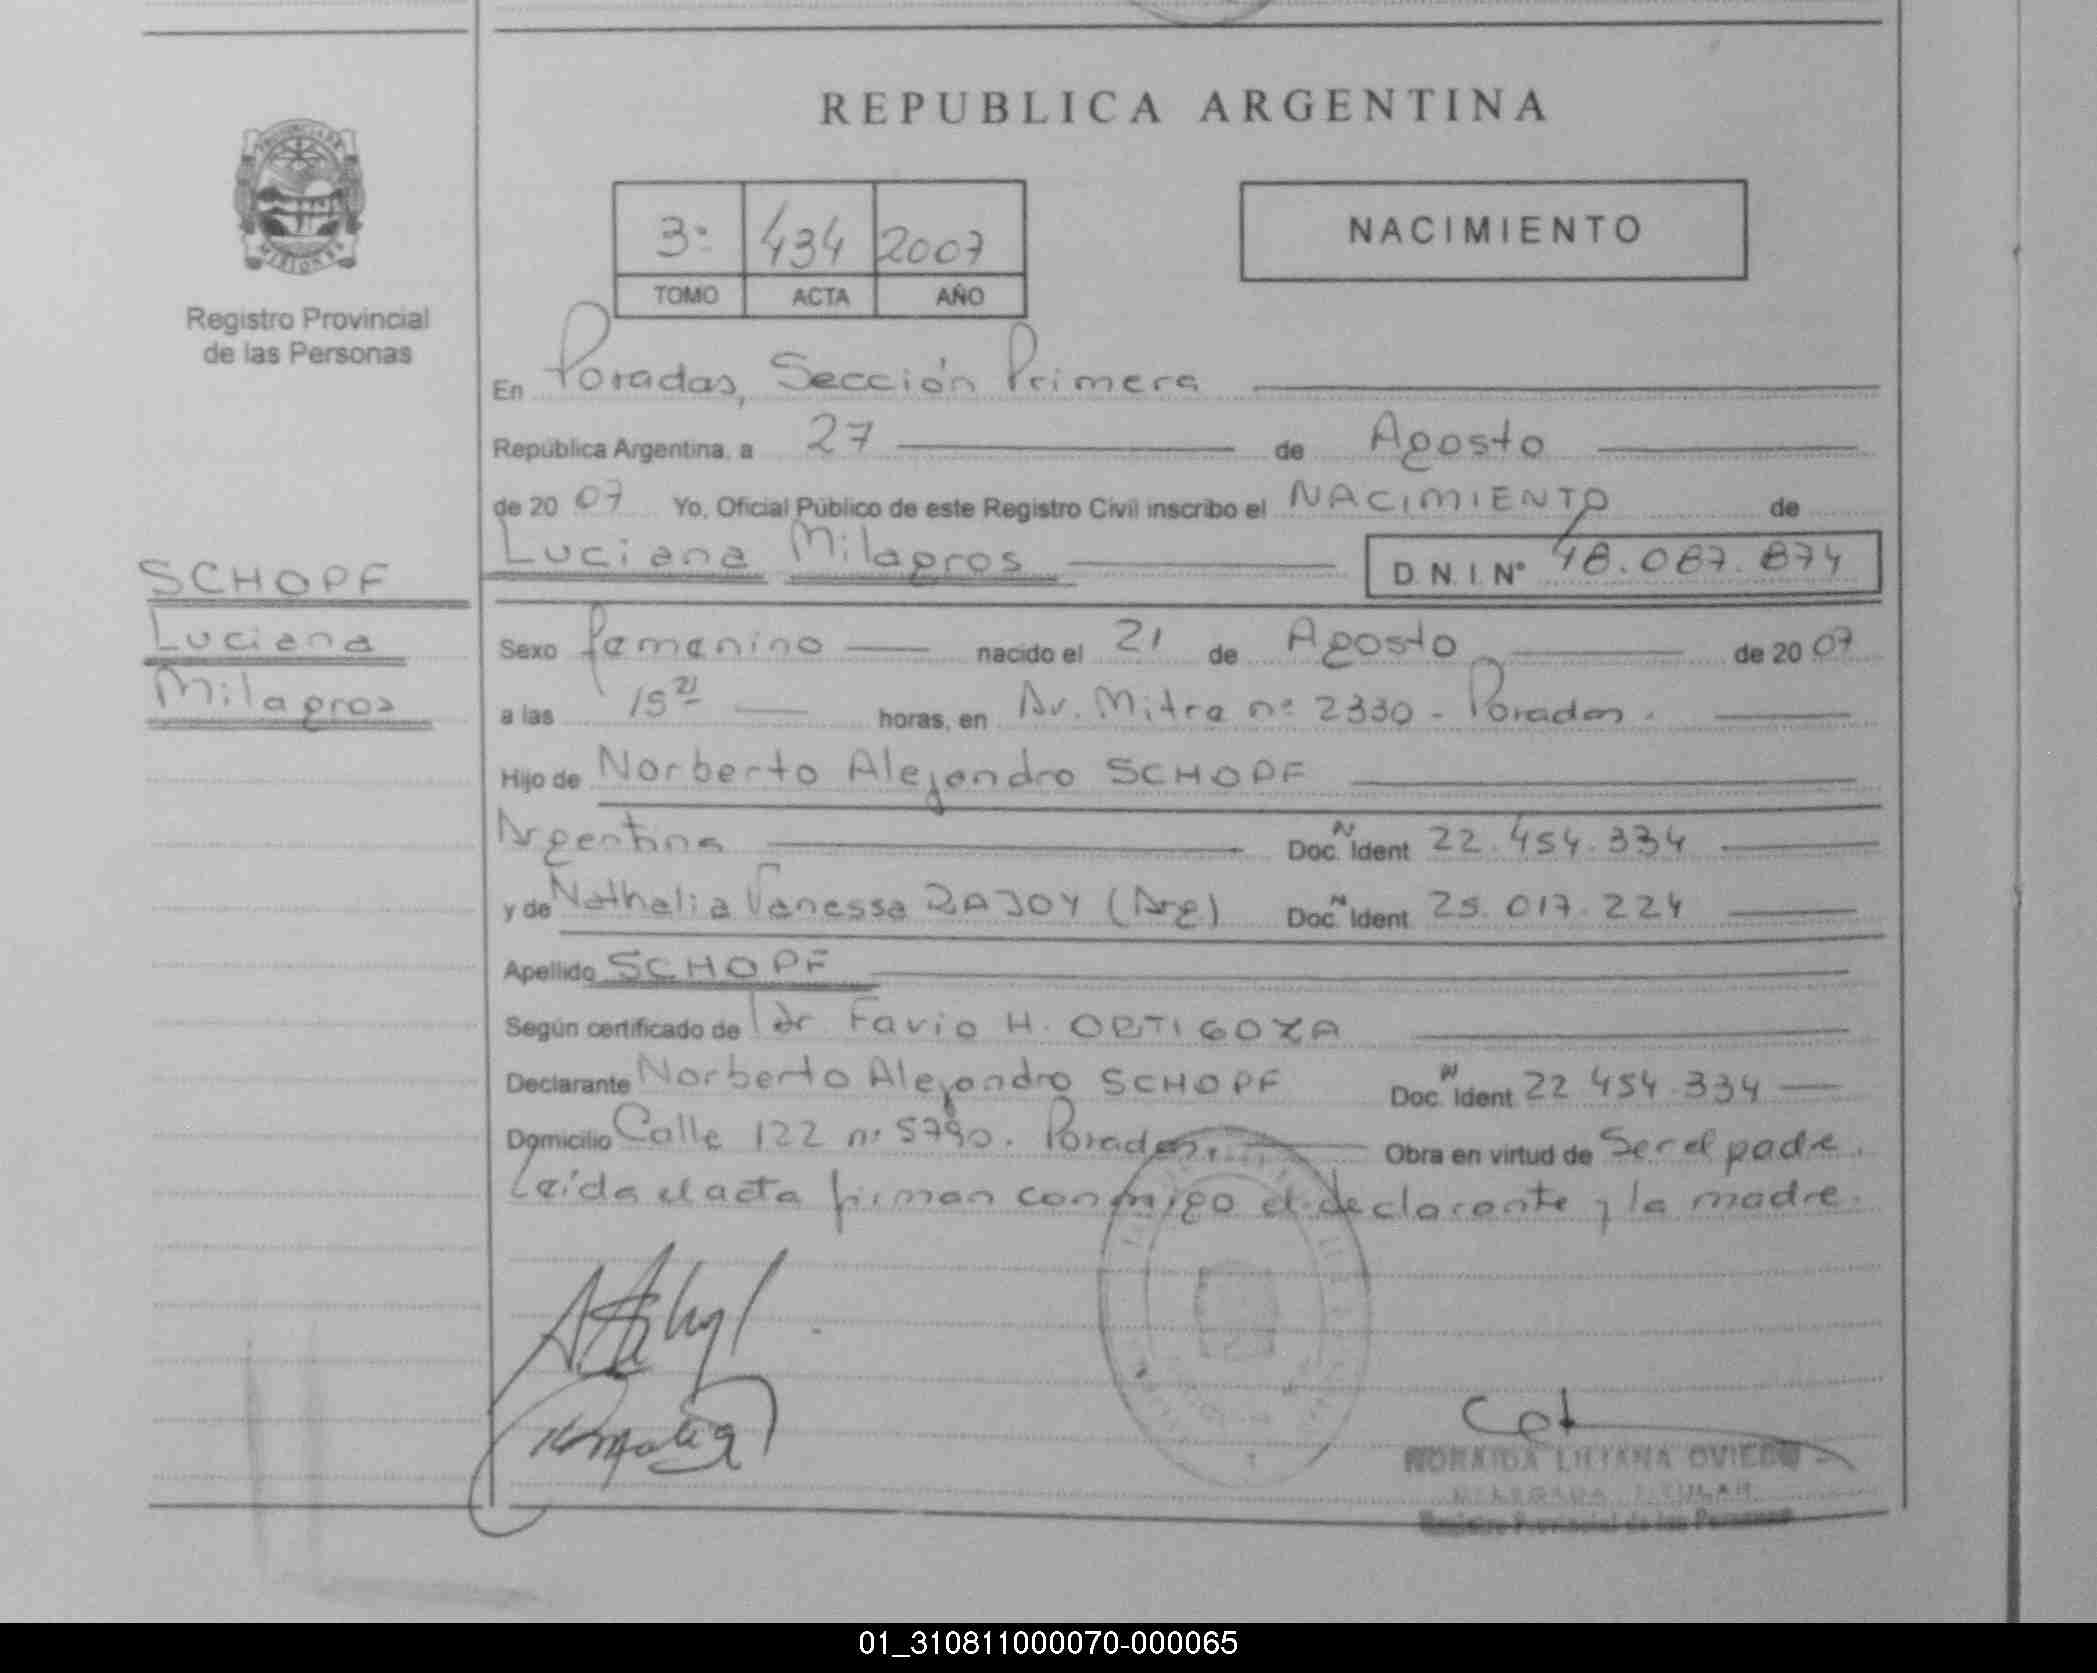 REPUBLICA ARGENTINA
PROVINCIA DE
MISIONES
Registro Provincial
de las Personas
3º 434 2007
TOMO ACTA AÑO
NACIMIENTO
En Posadas, Sección Primera
República Argentina, a 27 de Agosto
de 20 07 Yo, Oficial Público de este Registro Civil inscribo el NACIMIENTO de
Luciana Milagros D.N.I. Nº 48.087.874
SCHOPF
Luciana
Milagros
Sexo femenino nacido el 21 de Agosto de 20 07
a las 15 21 horas, en Av. Mitre nº 2330 - Posadas.
Hijo de Norberto Alejandro SCHOPF
Argentina Doc. N Ident 22.454.334
y de Nathalia Vanessa (Arg) Doc. N Ident 25.017.224
Apellido SCHOPF
Según certificado de Dr Favio H. ORTIGOZA
Declarante Norberto Alejandro SCHOPF Doc. N Ident 22 454.334
Domicilio Calle 122 nº 5790. Posadas. Obra en virtud de Ser el padre.
Leída el acta firman conmigo el declarante y la madre.
NORAIDA LILIANA OVIEDO
DELEGADA TITULAR
Registro Provincial de las Personas
01_310811000070-000065